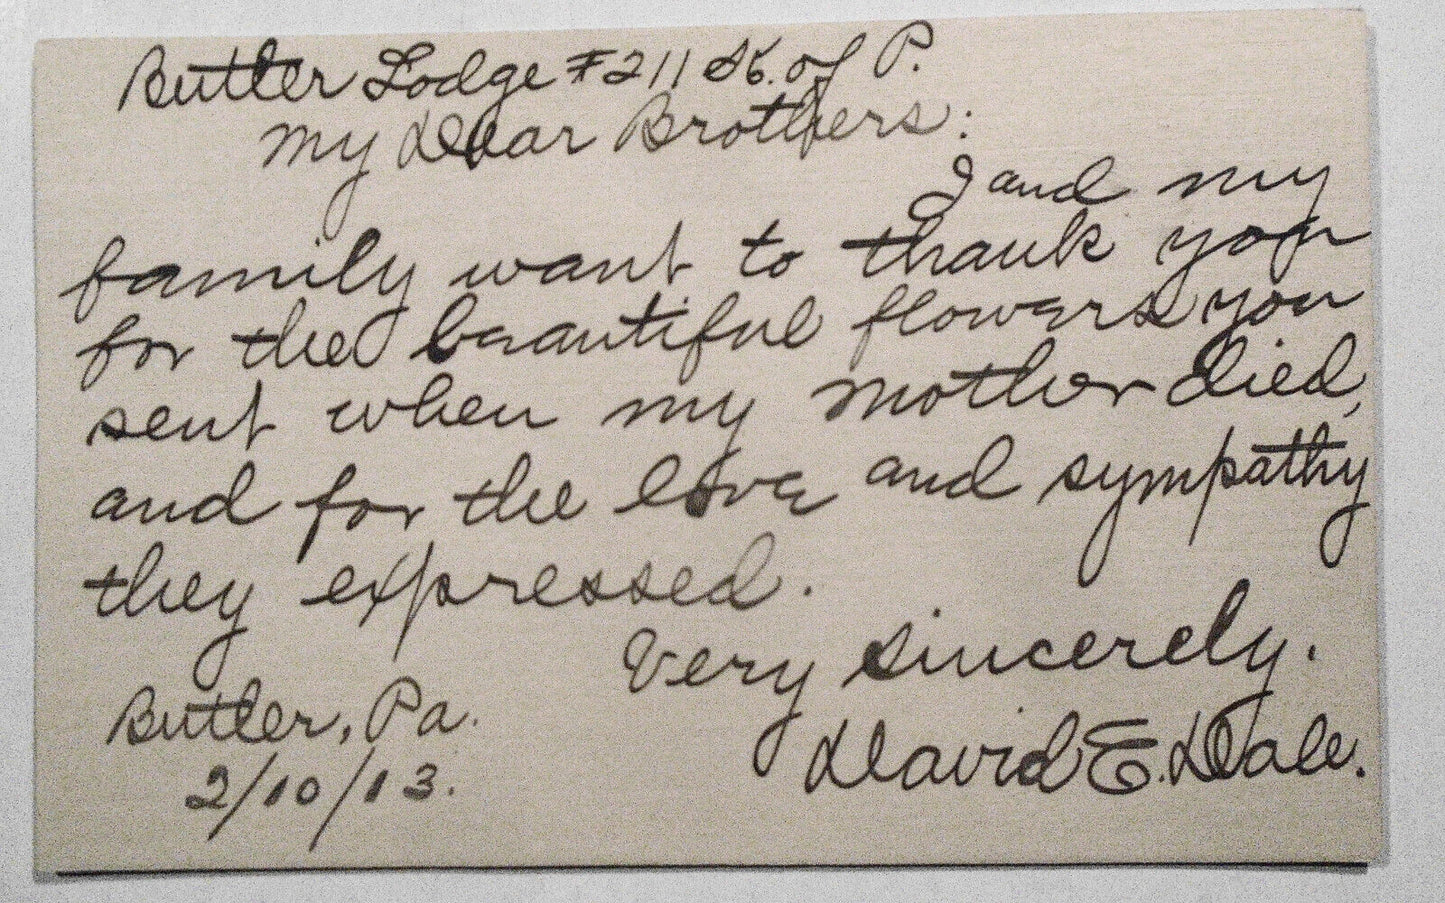 Butler Lodge #211 K. of P.
My Dear Brothers:
I and my
family want to thank you
for the beautiful flowers you
sent when my mother died,
and for the love and sympathy
they expressed.
Very sincerely.
Butler, Pa.
David E. Dale.
2/10/13.